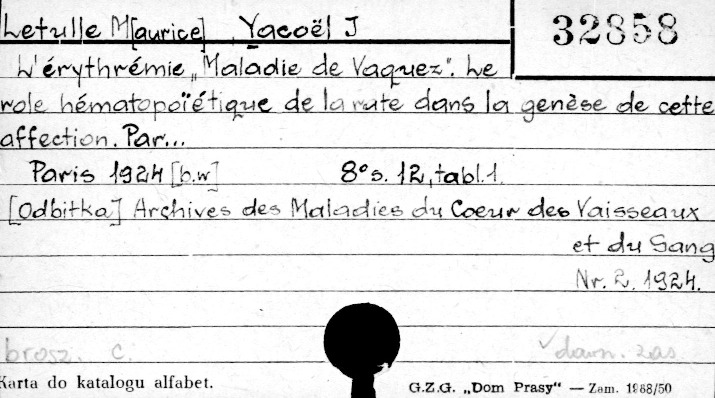 Letulle M[aurice], Yacoël J
32858
L'érythrémie „Maladie de Vaquez". Le
role hématopoïétique de la rate dans la genèse de cette
affection. Par...
Paris 1924 [b.w] 8° s. 12, tabl. 1.
[Odbitka] Archives des Maladies du Coeur des Vaisseaux
et du Sang
Nr. 2. 1924.
brosz. c. dawn. zas
Karta do katalogu alfabet.
G.Z.G. „Dom Prasy" — Zam. 1968/50